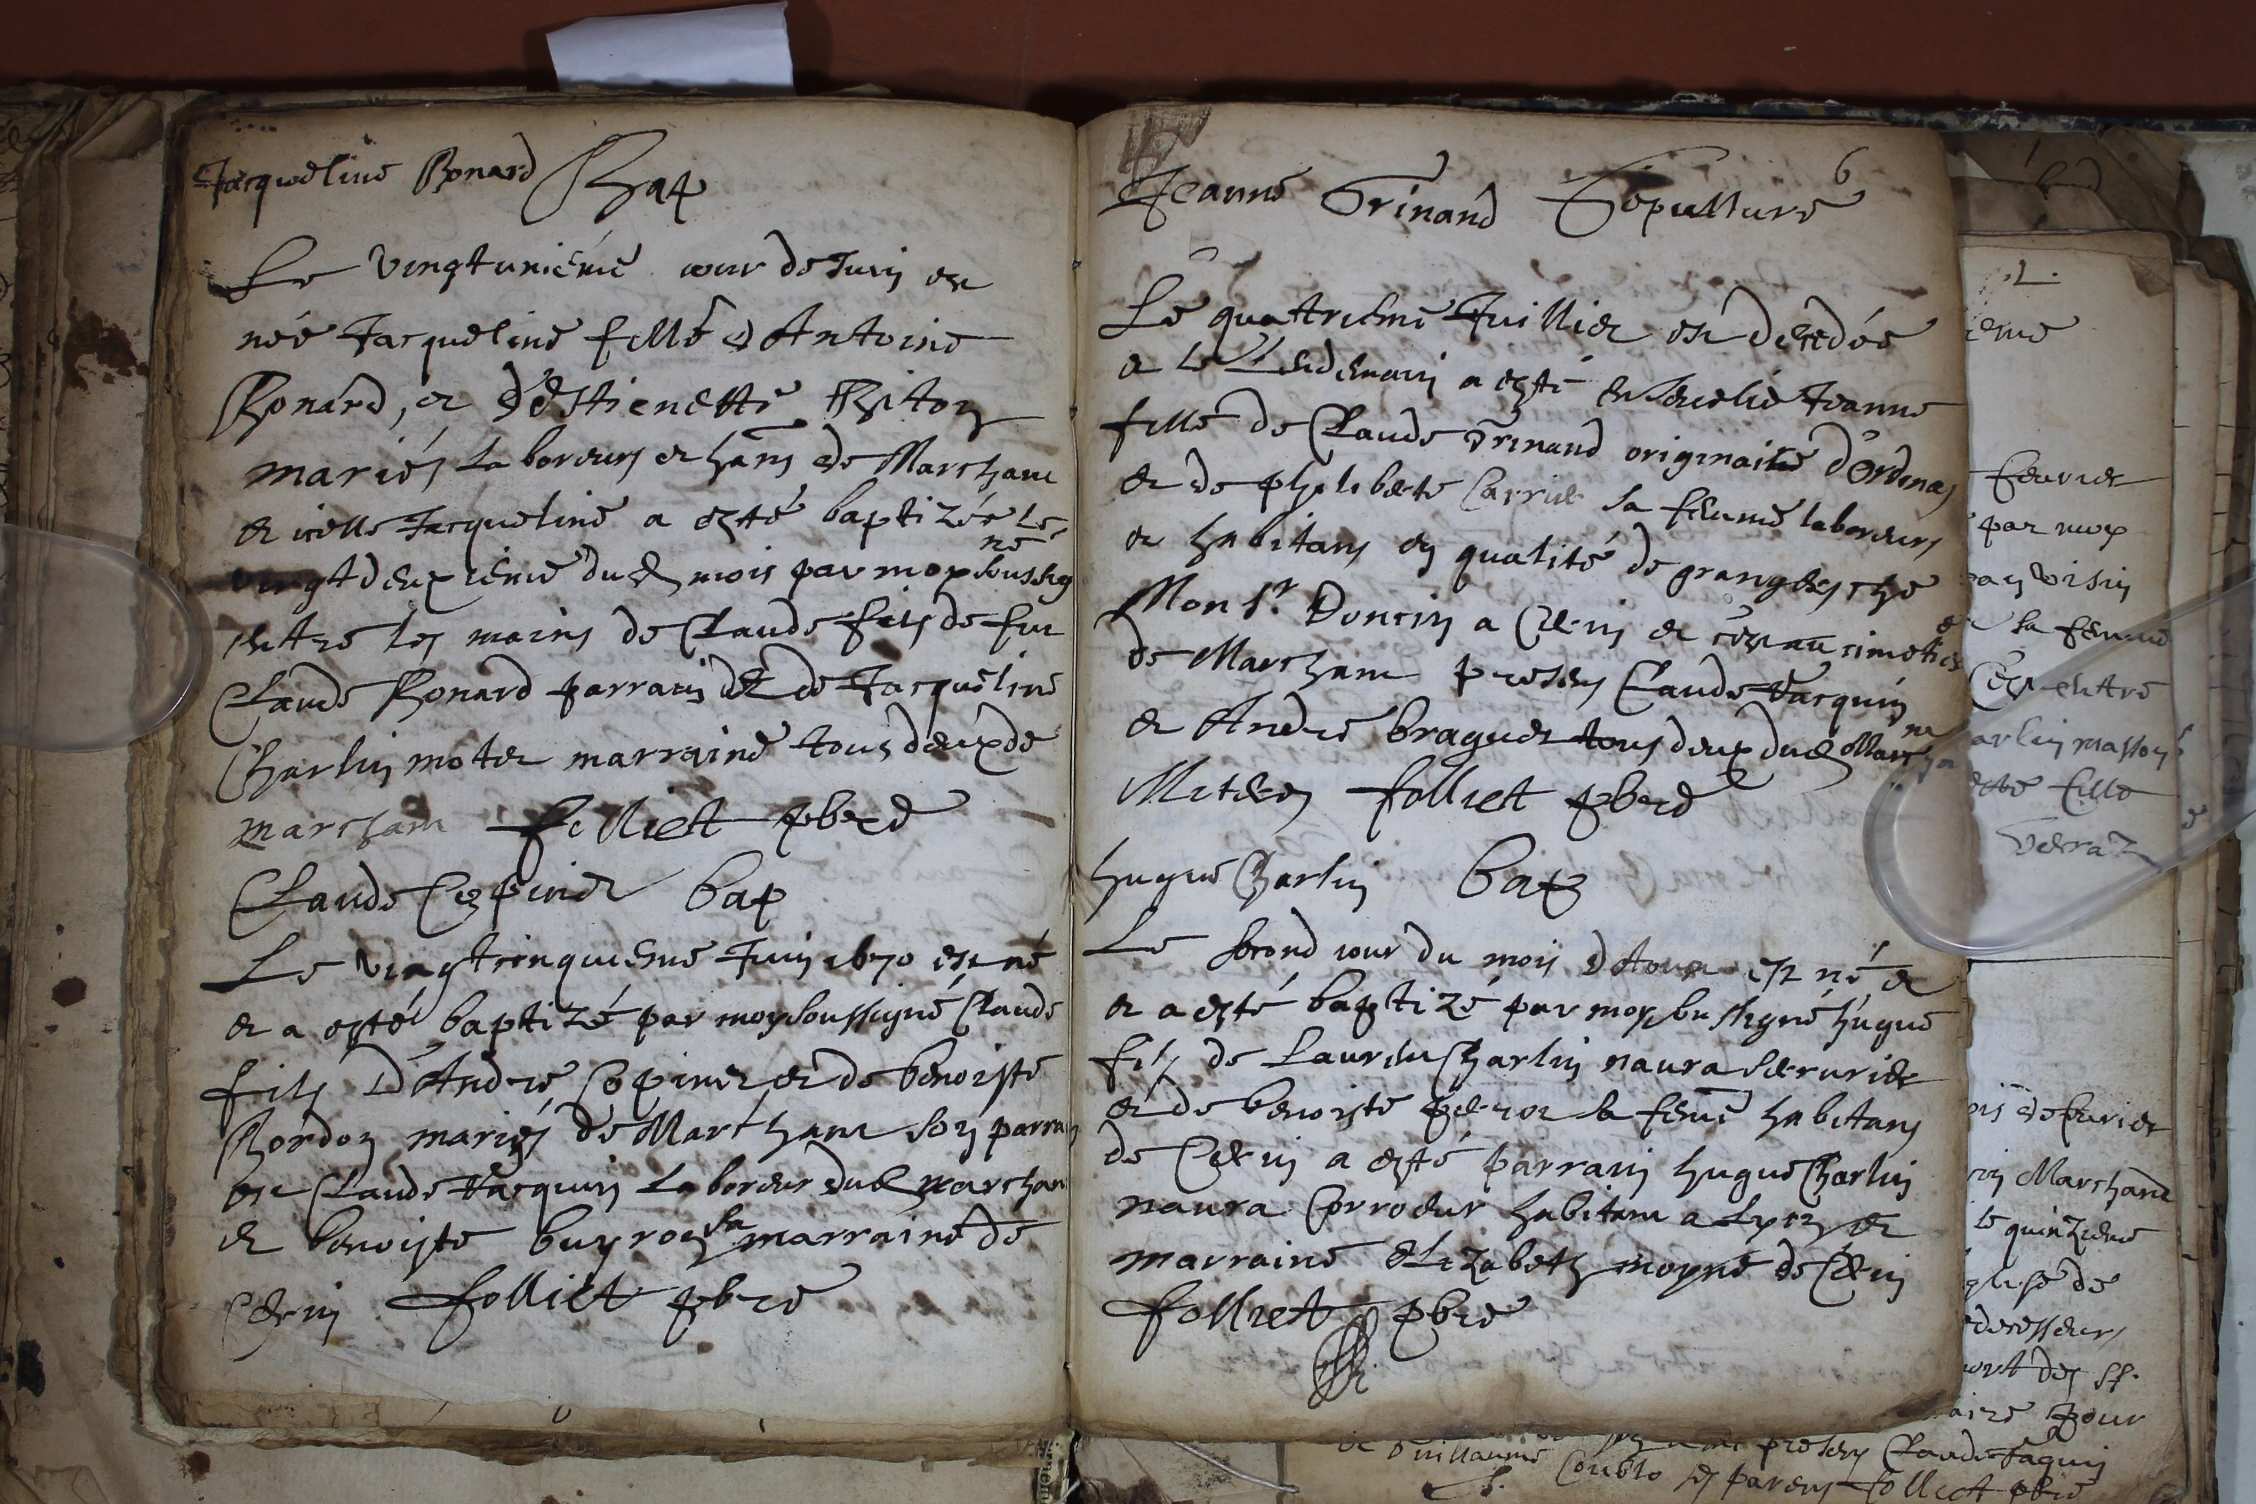 Jacqueline Ronard Bap
Le vingtuniéme iour de Juin est
née Jacqueline fille d'Antoine
Ronard, et d'Estienette
mariés laboreurs et hans de Marcham
et icelle Jacqueline a esté baptizée le
vingtdeuxiéme dud mois par moy soussig
né
entre les mains de Claude fils de feu
Claude Ronard parrain et de Jacqueline
Charlin marraine tous deux de
marcham Folliet pbre
Claude Copinet bap
Le vingtcinquiesme Juin 1670 est né
et a esté baptizé par moy soussigné Claude
fils d'André Copinet et de benoiste
Bordon mariés de Marcham son parrain
est Claude Vacquin laboreur dud marcham
et benoiste buyron sa marraine de
Folliet pbre
6
Jeanne Trinand Sepulture
Le quattriesme Juilliet est decedée
et le lendemain a esté ensevelie Jeanne
fille de Claude Trinand originaire d'Ordonas
et de philiberte Carrier sa femme laboreurs
et habitans en qualité de grangers ché
Mons.r Doncin a Cerin et ce au cimetiere
de Marcham presens Claude Vacquin
et André braguet tous deux dud Marcham
Folliet pbre
hugue Charlin bap
Le second iour du mois d'Aoust est né et
et a esté baptizé par moy soussigné hugue
fils de Laurent Charlin naura serrurier
et de benoiste sa feme habitans
de Cerin a esté parrain hugue Charlin
naura Corroeur habitant a Lyon et
marraine Elizabeth moyne de Cerin
Folliet pbre
feurier
par moy
voisin
sa femme
entre
fille
Marchand
le quinzieme
pour
presens Claude Vaquin
Guillaume parens Folliet pbre